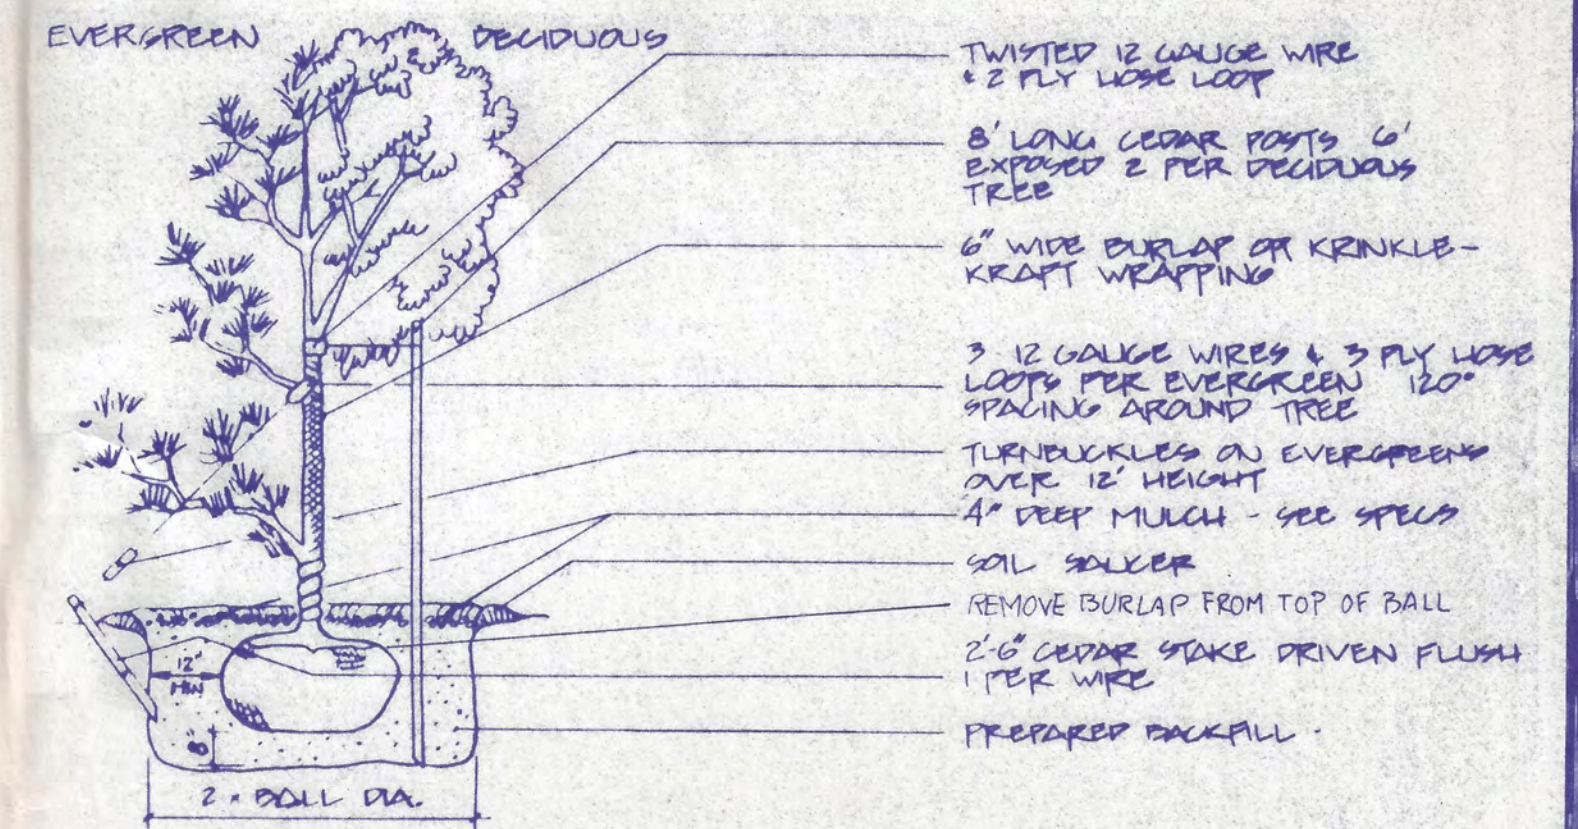 EVERGREEN DECIDUOUS
TWISTED 12 GAUGE WIRE
& 2 PLY HOSE LOOP
8' LONG CEDAR POSTS 6'
EXPOSED 2 PER DECIDUOUS
TREE
6" WIDE BURLAP OR KRINKLE-
KRAFT WRAPPING
3 - 12 GAUGE WIRES & 3 PLY HOSE
LOOPS PER EVERGREEN 120°
SPACING AROUND TREE
TURNBUCKLES ON EVERGREENS
OVER 12' HEIGHT
4" DEEP MULCH - SEE SPECS
SOIL SAUCER
REMOVE BURLAP FROM TOP OF BALL
2'-6" CEDAR STAKE DRIVEN FLUSH
1 PER WIRE
PREPARED BACKFILL
12"
MIN
2 x BALL DIA.